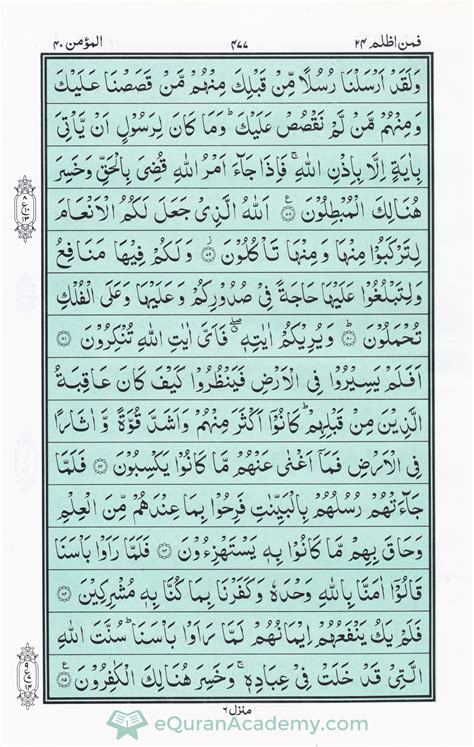 فمن اظلم ٢٤ ٤٧٧ المؤمن ٤٠
وَلَقَدْ اَرْسَلْنَا رُسُلًا مِّنْ قَبْلِكَ مِنْهُمْ مَّنْ قَصَصْنَا عَلَيْكَ
وَمِنْهُمْ مَّنْ لَّمْ نَقْصُصْ عَلَيْكَ ؕ وَمَا كَانَ لِرَسُوْلٍ اَنْ يَّاْتِيَ
بِاٰيَةٍ اِلَّا بِاِذْنِ اللّٰهِ ۚ فَاِذَا جَآءَ اَمْرُ اللّٰهِ قُضِيَ بِالْحَقِّ وَخَسِرَ
هُنَالِكَ الْمُبْطِلُوْنَ ۟ اَللّٰهُ الَّذِيْ جَعَلَ لَكُمُ الْاَنْعَامَ
لِتَرْكَبُوْا مِنْهَا وَمِنْهَا تَاْكُلُوْنَ ۟ وَلَكُمْ فِيْهَا مَنَافِعُ
وَلِتَبْلُغُوْا عَلَيْهَا حَاجَةً فِيْ صُدُوْرِكُمْ وَعَلَيْهَا وَعَلَى الْفُلْكِ
تُحْمَلُوْنَ ۟ وَيُرِيْكُمْ اٰيٰتِهٖ ۖ فَاَيَّ اٰيٰتِ اللّٰهِ تُنْكِرُوْنَ ۟
اَفَلَمْ يَسِيْرُوْا فِي الْاَرْضِ فَيَنْظُرُوْا كَيْفَ كَانَ عَاقِبَةُ
الَّذِيْنَ مِنْ قَبْلِهِمْ ؕ كَانُوْۤا اَكْثَرَ مِنْهُمْ وَاَشَدَّ قُوَّةً وَّاٰثَارًا
فِي الْاَرْضِ فَمَاۤ اَغْنٰى عَنْهُمْ مَّا كَانُوْا يَكْسِبُوْنَ ۟ فَلَمَّا
جَآءَتْهُمْ رُسُلُهُمْ بِالْبَيِّنٰتِ فَرِحُوْا بِمَا عِنْدَهُمْ مِّنَ الْعِلْمِ
وَحَاقَ بِهِمْ مَّا كَانُوْا بِهٖ يَسْتَهْزِءُوْنَ ۟ فَلَمَّا رَاَوْا بَاْسَنَا
قَالُوْۤا اٰمَنَّا بِاللّٰهِ وَحْدَهٗ وَكَفَرْنَا بِمَا كُنَّا بِهٖ مُشْرِكِيْنَ ۟
فَلَمْ يَكُ يَنْفَعُهُمْ اِيْمَانُهُمْ لَمَّا رَاَوْا بَاْسَنَا ؕ سُنَّتَ اللّٰهِ
الَّتِيْ قَدْ خَلَتْ فِيْ عِبَادِهٖ ۚ وَخَسِرَ هُنَالِكَ الْكٰفِرُوْنَ ۟
منزل ٦
eQuranAcademy.com